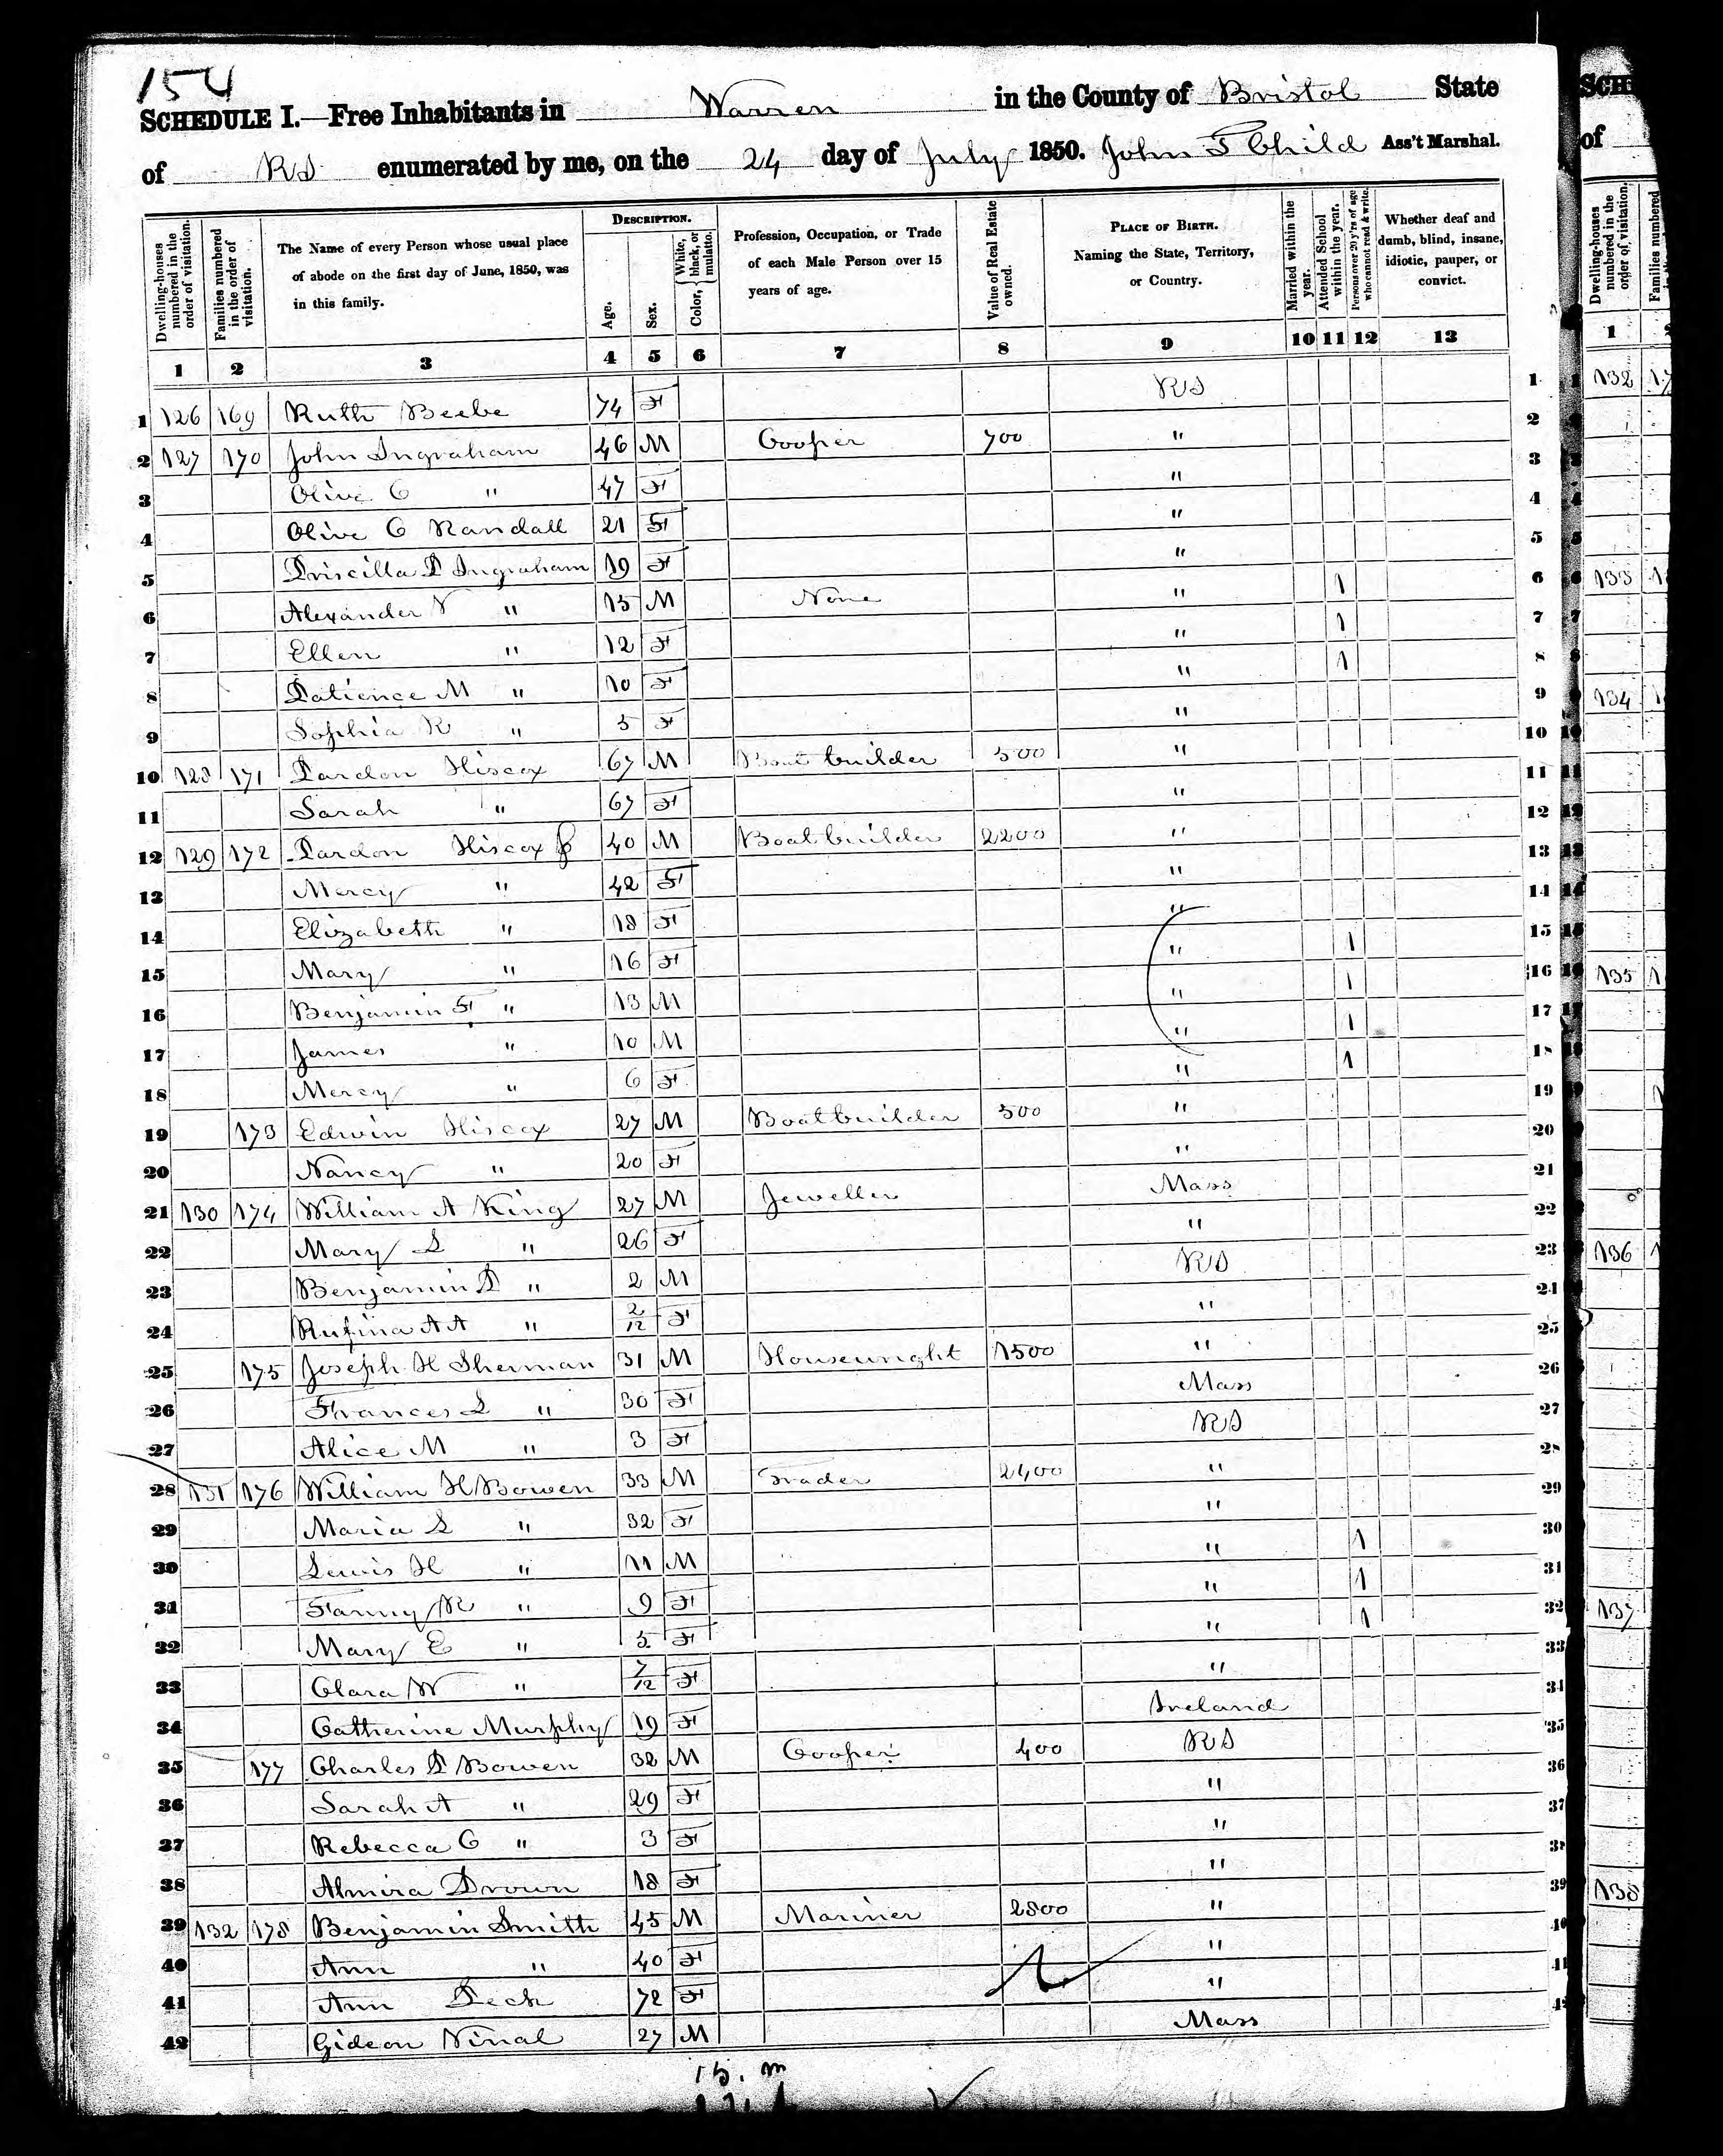 154
SCHEDULE I.—Free Inhabitants in Warren in the County of Bristol State
of RI enumerated by me, on the 24 day of July 1850. John T Child Ass't Marshal.
Dwelling-houses numbered in the order of visitation.
Families numbered in the order of visitation.
The Name of every Person whose usual place of abode on the first day of June, 1850, was in this family.
DESCRIPTION.
Age.
Sex.
Color, { White, black, or mulatto.
Profession, Occupation, or Trade of each Male Person over 15 years of age.
Value of Real Estate owned.
PLACE OF BIRTH. Naming the State, Territory, or Country.
Married within the year.
Attended School within the year.
Persons over 20 y'rs of age who cannot read & write.
Whether deaf and dumb, blind, insane, idiotic, pauper, or convict.
1 2 3 4 5 6 7 8 9 10 11 12 13
1 126 169 Ruth Beebe 74 F RI 1
2 127 170 John Ingraham 46 M Cooper 700 " 2
3 Olive C " 47 F " 3
4 Olive C Randall 21 F " 4
5 Priscilla P Ingraham 19 F " 5
6 Alexander V " 15 M None " 1 6
7 Ellen " 12 F " 1 7
8 Patience M " 10 F " 1 8
9 Sophia R " 5 F " 9
10 128 171 Pardon Hiscox 67 M Boat builder 500 " 10
11 Sarah " 67 F " 11
12 129 172 Pardon Hiscox Jr 40 M Boatbuilder 2200 " 12
13 Mercy " 42 F " 13
14 Elizabeth " 18 F " 14
15 Mary " 16 F " 1 15
16 Benjamin F " 13 M " 1 16
17 James " 10 M " 1 17
18 Mercy " 6 F " 1 18
19 173 Edwin Hiscox 27 M Boatbuilder 500 " 19
20 Nancy " 20 F " 20
21 130 174 William A King 27 M Jeweller Mass 21
22 Mary S " 26 F " 22
23 Benjamin P " 2 M RI 23
24 Rufina A A " 2/12 F " 24
25 175 Joseph H Sherman 31 M Housewright 1500 " 25
26 Frances S " 30 F Mass 26
27 Alice M " 3 F RI 27
28 131 176 William H Bowen 33 M Trader 2400 " 28
29 Maria S " 32 F " 29
30 Lewis H " 11 M " 1 30
31 Fanny R " 9 F " 1 31
32 Mary E " 5 F " 1 32
33 Clara W " 7/12 F " 33
34 Catherine Murphy 19 F Ireland 34
35 177 Charles P Bowen 32 M Cooper 400 RI 35
36 Sarah A " 29 F " 36
37 Rebecca C " 3 F " 37
38 Almira Drown 18 F " 38
39 132 178 Benjamin Smith 45 M Mariner 2800 " 39
40 Ann " 40 F " 40
41 Ann Peck 72 F " 41
42 Gideon Vinal 27 M Mass 42
15. m
SCH
of
Dwelling-houses numbered in the order of visitation.
Families numbered
1
132
133
134
135
136
137
138